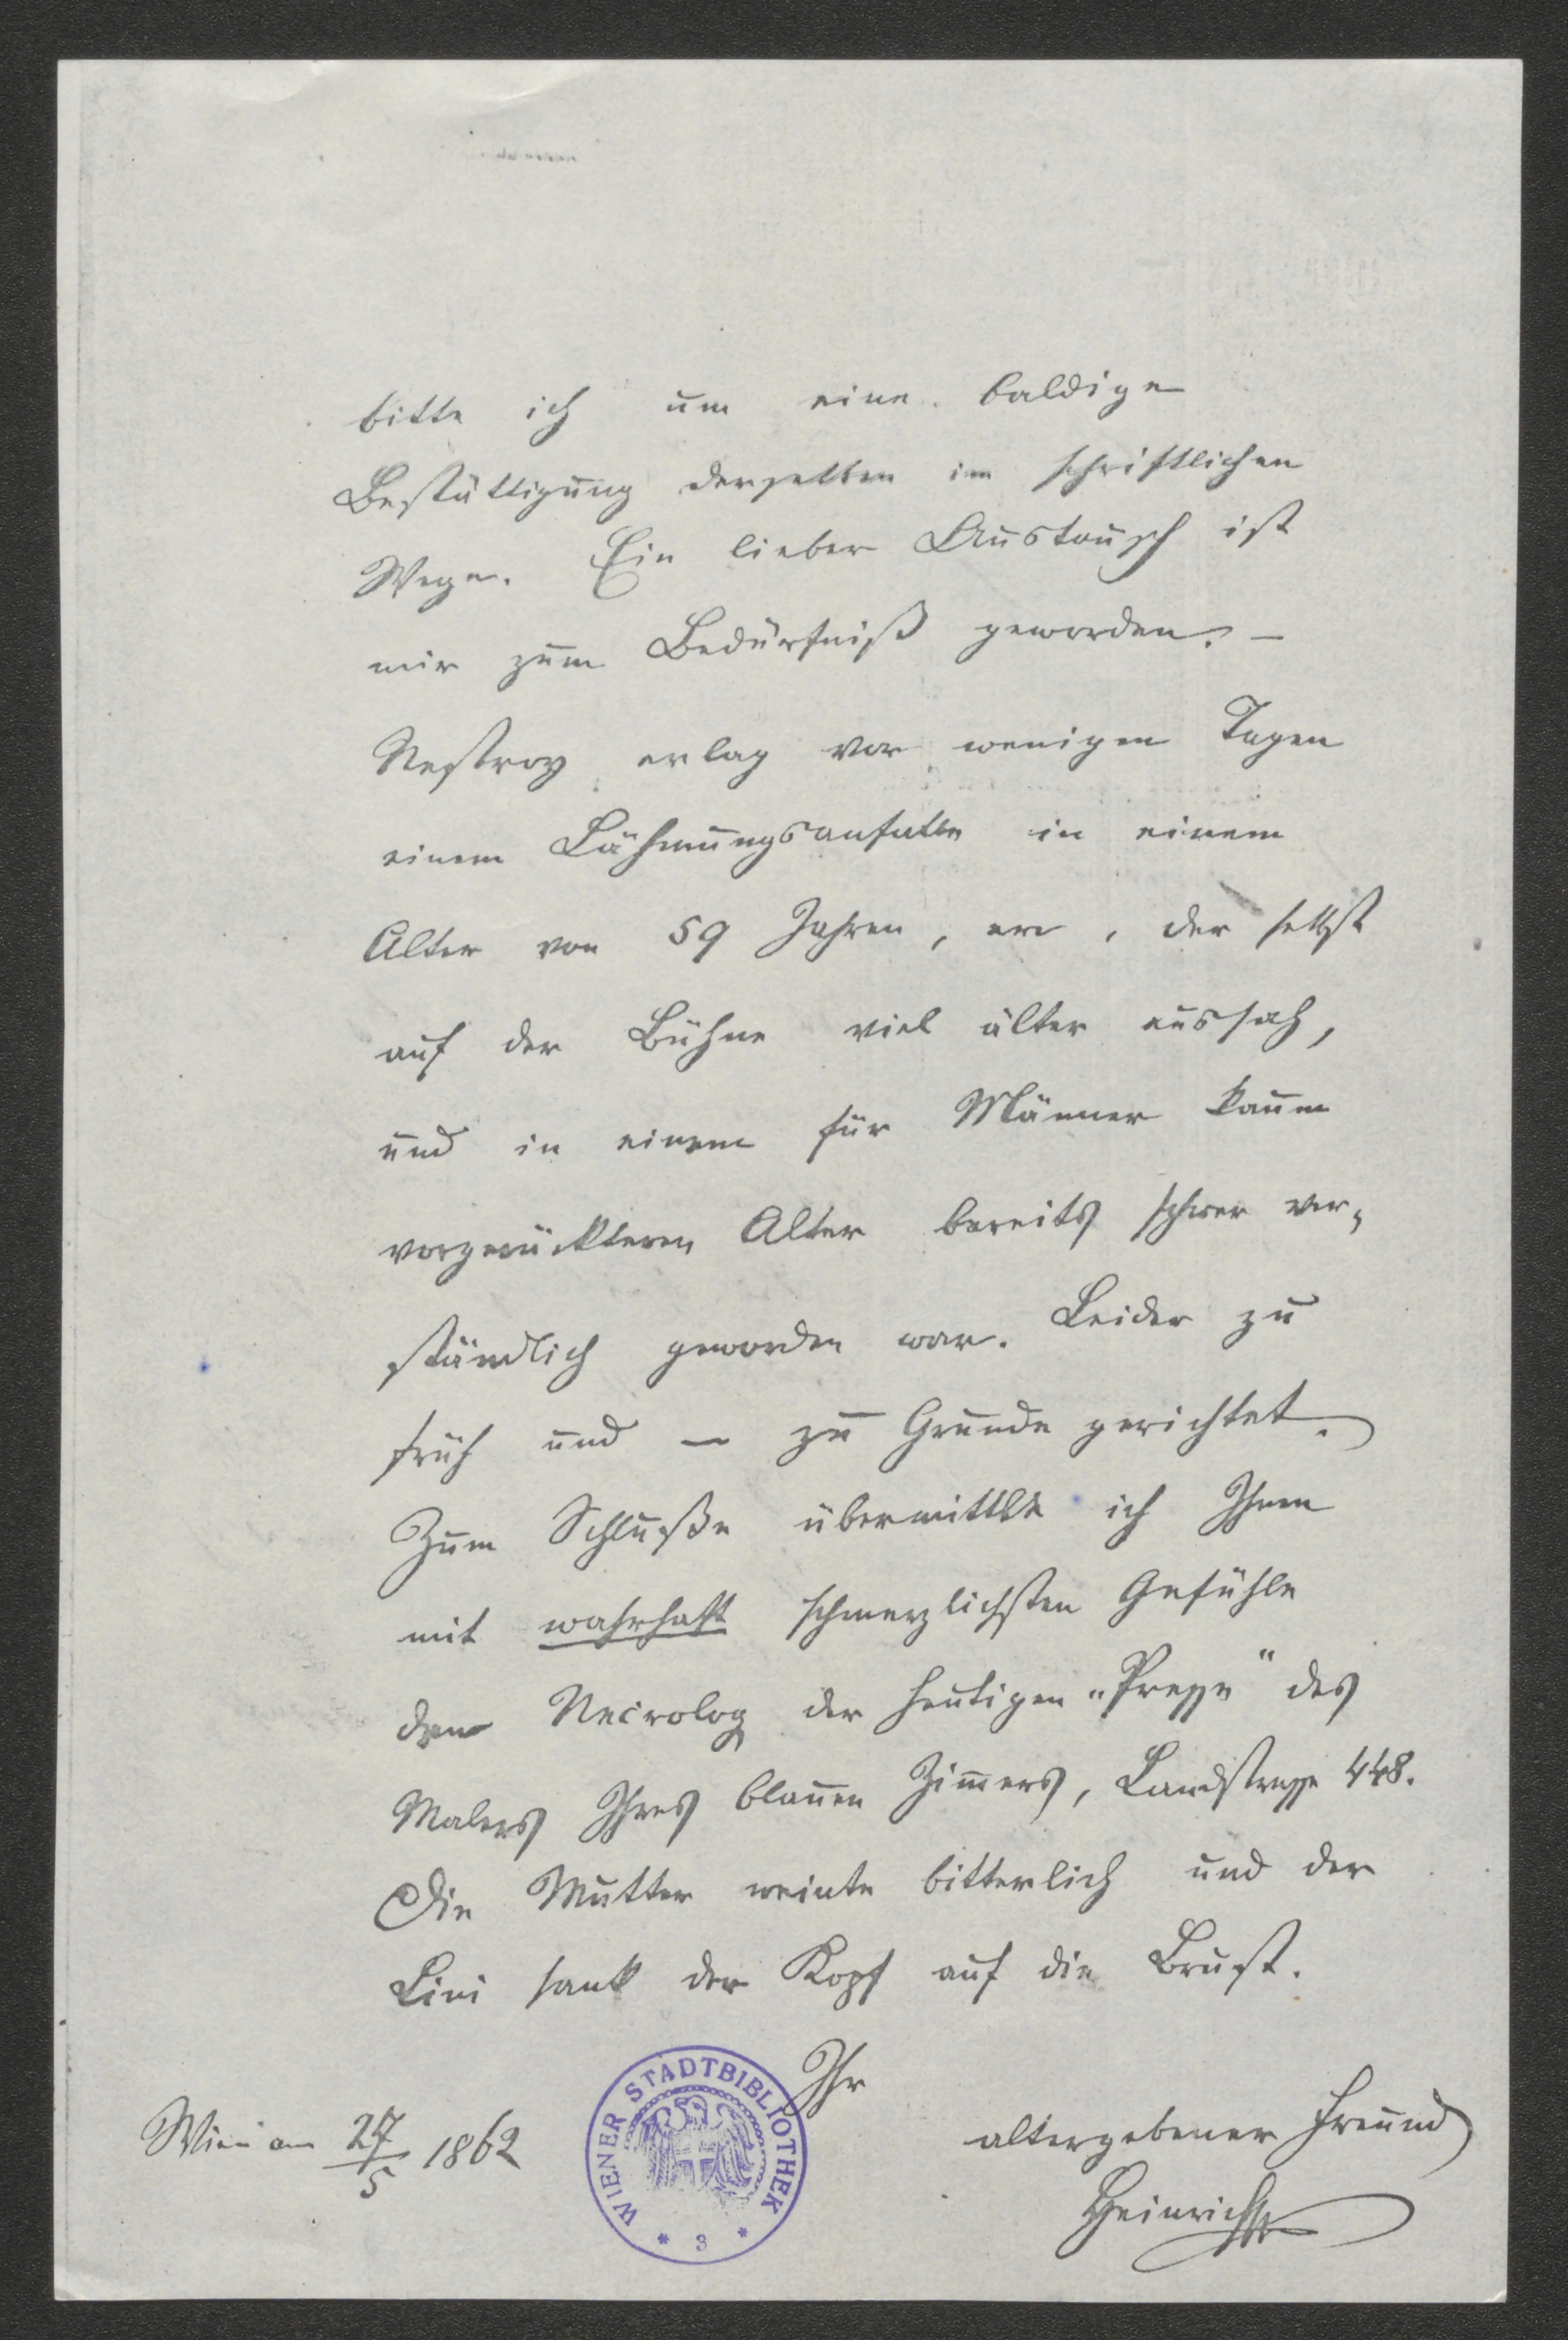 bitte ich um eine baldige
Bestättigung derselben im schriftlichen
Wege. Ein lieber Austausch ist
mir zum Bedürfniß geworden. –
Nestroy erlag vor wenigen Tagen
einem Lähmungsanfalle in einem
Alter von 59 Jahren, er, der selbst
auf der Bühne viel älter aussah,
und in einem für Männer kaum
vorgerückteren Alter bereits schwer ver,
ständlich geworden war. Leider zu
früh und — zu Grunde gerichtet.
Zum Schluße übermittle ich Ihnen
mit wahrhaft schmerzlichsten Gefühle
den Necrolog der heutigen „Presse" des
Malers Ihres blauen Zimmers, Landstrasse 448.
Die Mutter weinte bitterlich und der
Lini sank der Kopf auf die Brust.
Ihr
altergebener Freund
Wien am 27/5 1862
Heinrich
WIENER STADTBIBLIOTHEK
* 3 *